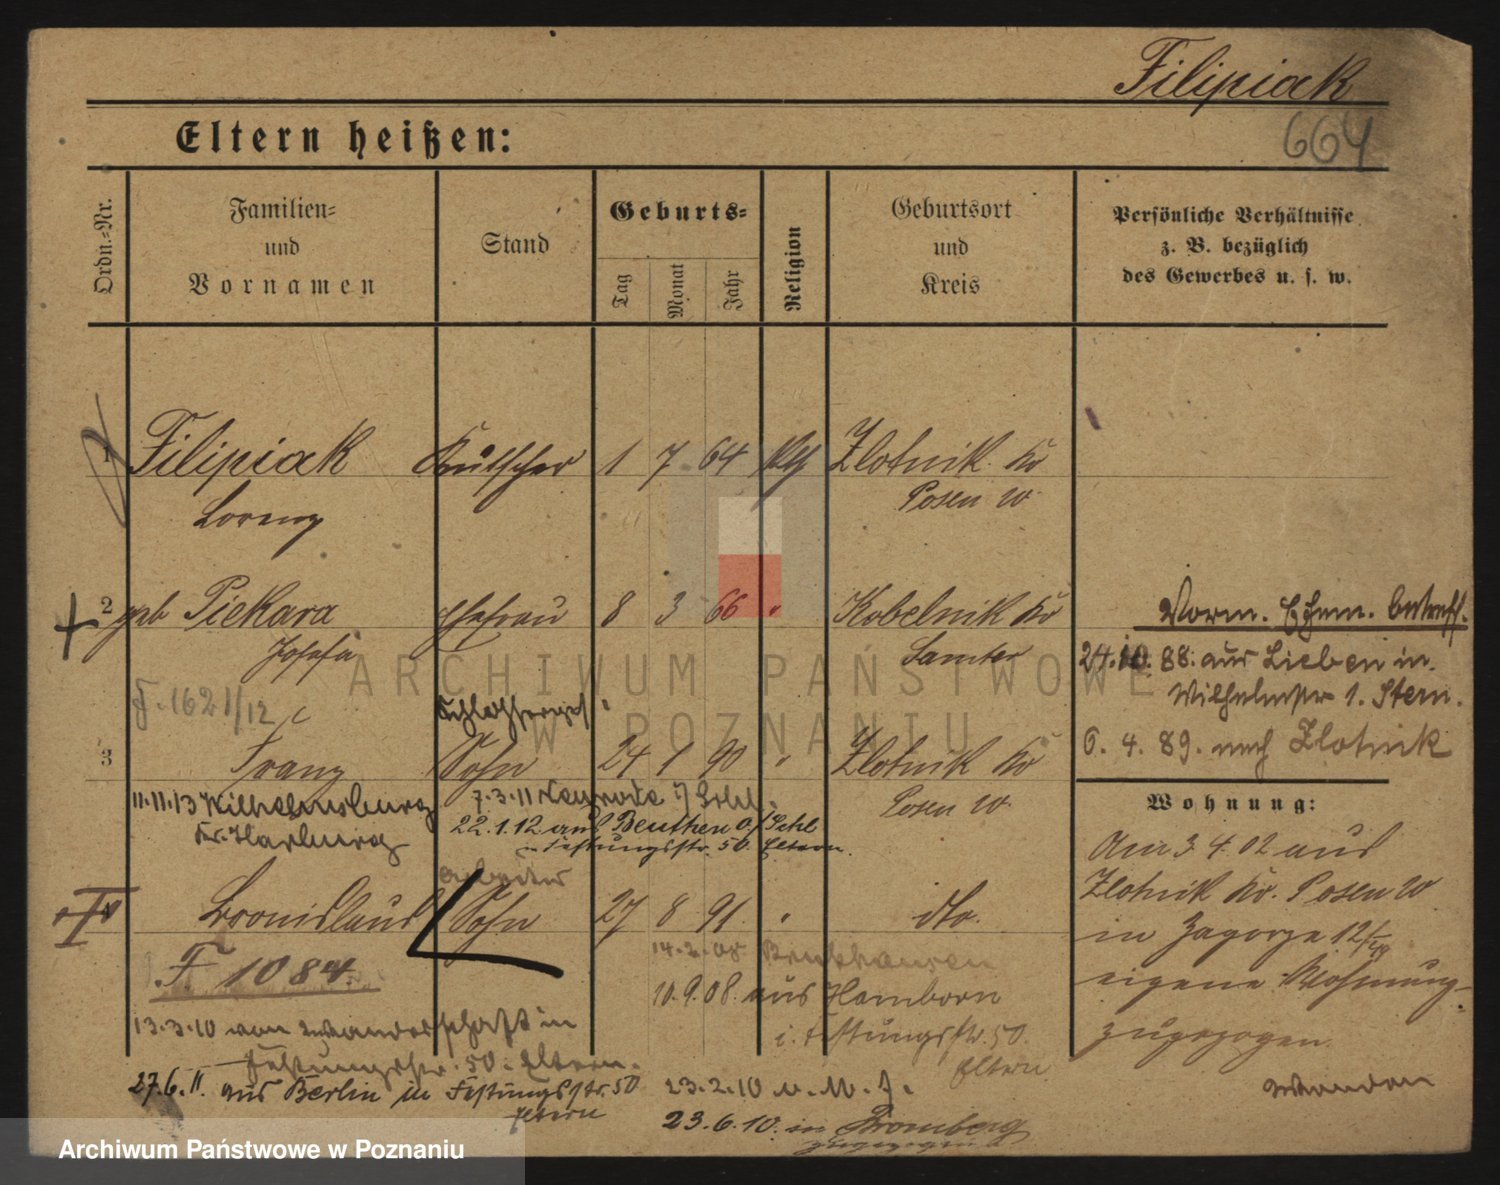 Filipiak
664
Eltern heißen:
Ordn.-Nr.
Familien-
und
Vornamen
Stand
Geburts-
Tag
Monat
Jahr
Religion
Geburtsort
und
Kreis
Persönliche Verhältnisse
z. B. bezüglich
des Gewerbes u. s. w.
1 Filipiak Kutscher 1 7 64 kth Zlotnik Kr
Lorenz Posen W
2 geb Piekara Ehefrau 8 3 66 " Kobelnik Kr
Josefa Samter
F. 1621/12
Schlosserges
3 Franz Sohn 24 1 90 " Zlotnik Kr
Posen W.
11.11.13 Wilhelmsburg
Kr. Harburg
7.3.11 Neurode i/ Schl.
22.1.12. aus Beuthen O/Schl
in Festungsstr. 50. Eltern.
Arbeiter
4 Bronislaus Sohn 27 8 91 " dto.
F 1084.
14.2.08 Bruckhausen
10.9.08. aus Hamborn
i. Festungsstr. 50.
Eltern
13.3.10 von Wanderschaft in
Festungsstr. 50. Eltern.
27.6.11. aus Berlin in Festungsstr. 50
Eltern
23.2.10 u. M. J.
23.6.10. in Bromberg
zugezogen
Vorm. Ehem. betreff.
24.10.88. aus Lieben in
Wilhelmstr 1. Stern.
6. 4. 89. nach Zlotnik
Wohnung:
Am 3 4 02 aus
Zlotnik Kr. Posen W
in Zagorze 12/
eigene Wohnung
zugezogen.
ARCHIWUM PAŃSTWOWE
W POZNANIU
Archiwum Państwowe w Poznaniu